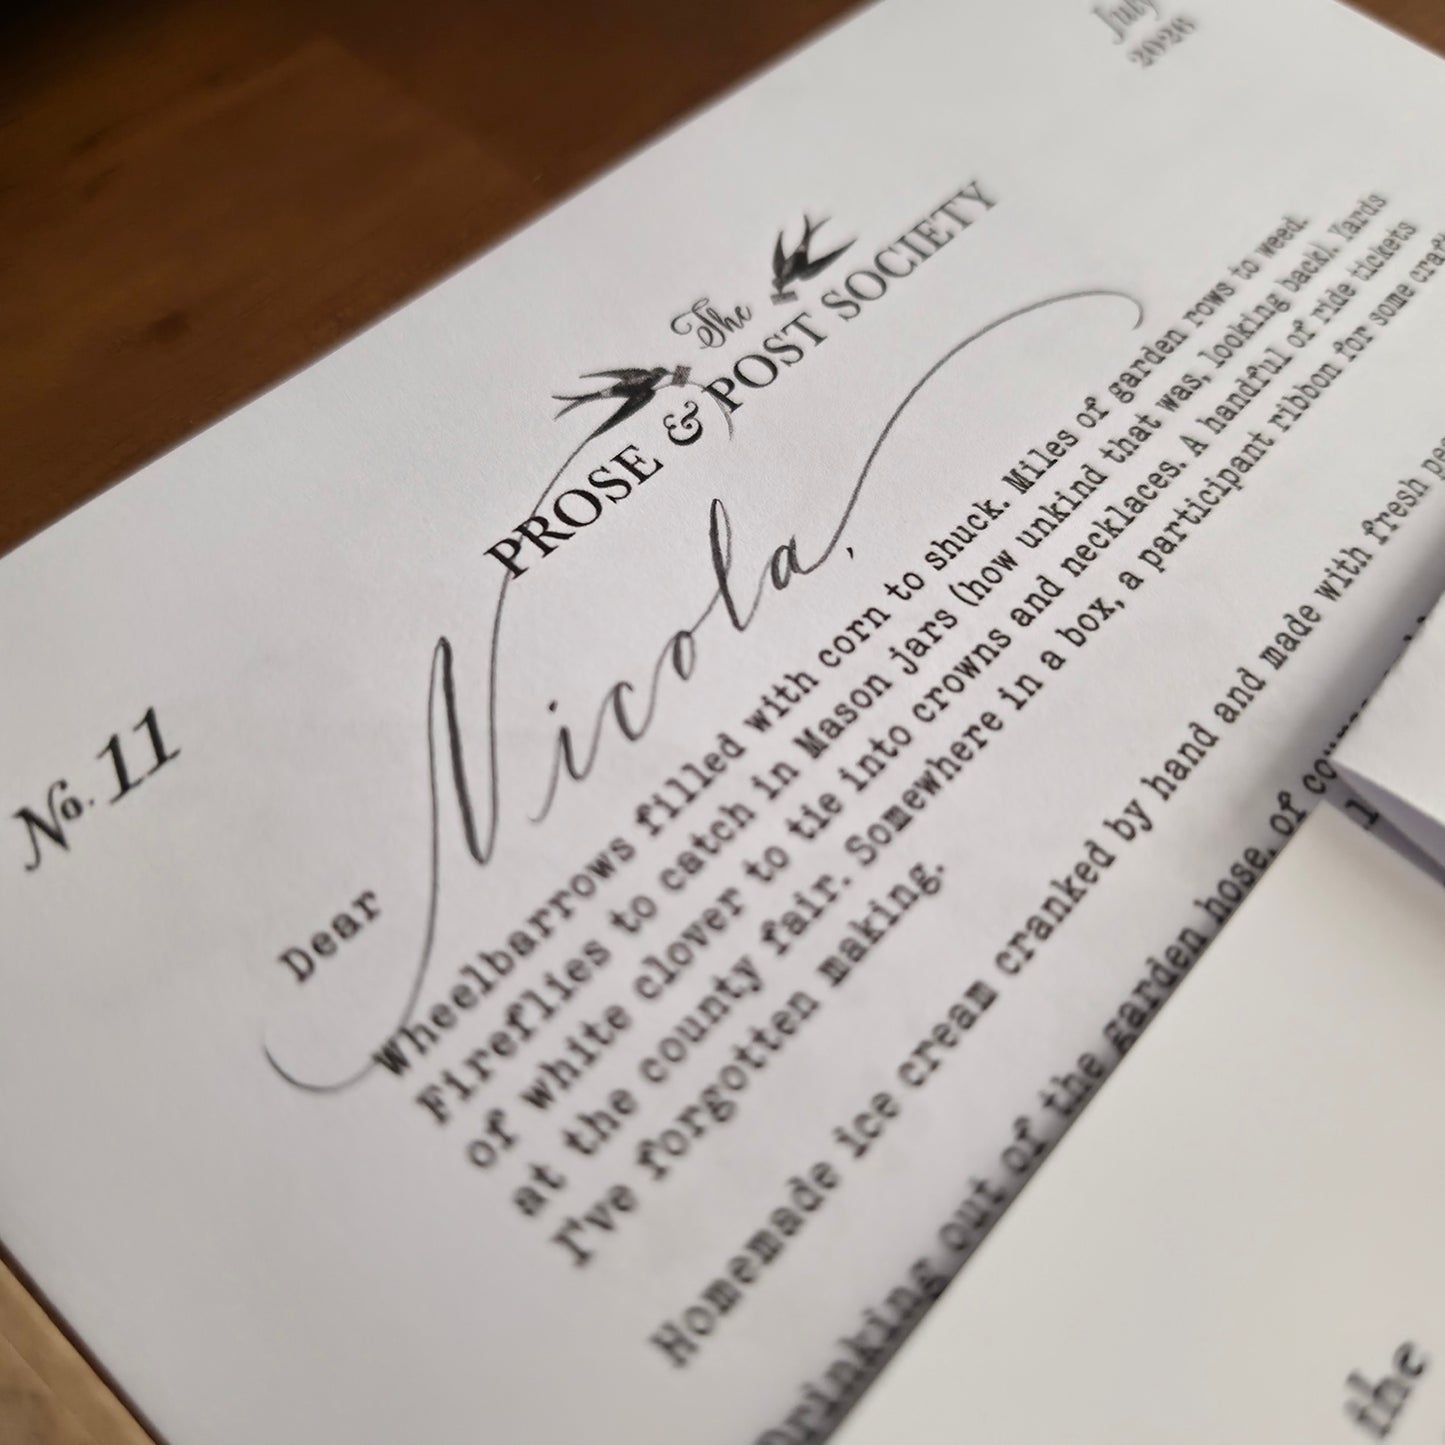 July
2026
The
PROSE & POST SOCIETY
No. 11
Dear Nicola,
Wheelbarrows filled with corn to shuck. Miles of garden rows to weed.
Fireflies to catch in Mason jars (how unkind that was, looking back). Yards
of white clover to tie into crowns and necklaces. A handful of ride tickets
at the county fair. Somewhere in a box, a participant ribbon for some
I've forgotten making.
Homemade ice cream cranked by hand and made with fresh
Drinking out of the garden hose, of
the